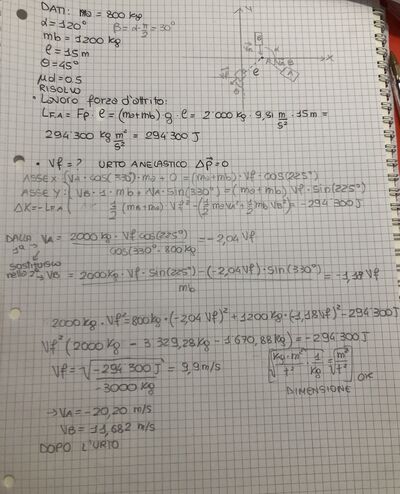 DATI: ma = 800 kg
α = 120° β = α - π/2 = 30°
mb = 1200 kg
ℓ = 15 m
θ = 45°
μd = 0.5
RISOLVO
• Lavoro forza d'attrito:
LFA = Fp · ℓ = (ma+mb) g · ℓ = 2'000 kg · 9,81 m/s² · 15m =
294 300 kg m²/s² = 294 300 J
• Vf = ? URTO ANELASTICO Δp⃗ = 0
ASSE X { VA · cos(330°) · ma + 0 = (ma+mb) · Vf · cos(225°)
ASSE Y { VB · 1 · mb + VA · sin(330°) = (ma+mb) Vf · sin(225°)
ΔK = -LFA { 1/2 (mA+mB) Vf² - (1/2 ma VA² + 1/2 mb VB²) = -294 300 J
DALLA 1ª VA = 2000 kg · Vf cos(225°) / cos(330°) · 800 kg = -2,04 Vf
sostituisco nella 2ª → VB = 2000 kg · Vf · sin(225°) - (-2,04 Vf) · sin(330°) / mb = -1,18 Vf
2000 kg · Vf² = 800 kg · (-2,04 Vf)² + 1200 kg · (-1,18 Vf)² - 294 300 J
Vf² (2000 kg - 3 329,28 kg - 1 670,88 kg) = -294 300 J
Vf = √(-294 300 J / -3000 kg) = 9,9 m/s [√(kg · m²/t² · 1/kg) = √(m²/t²)] OK
DIMENSIONE
→ VA = -20,20 m/s
VB = 11,682 m/s
DOPO L'URTO